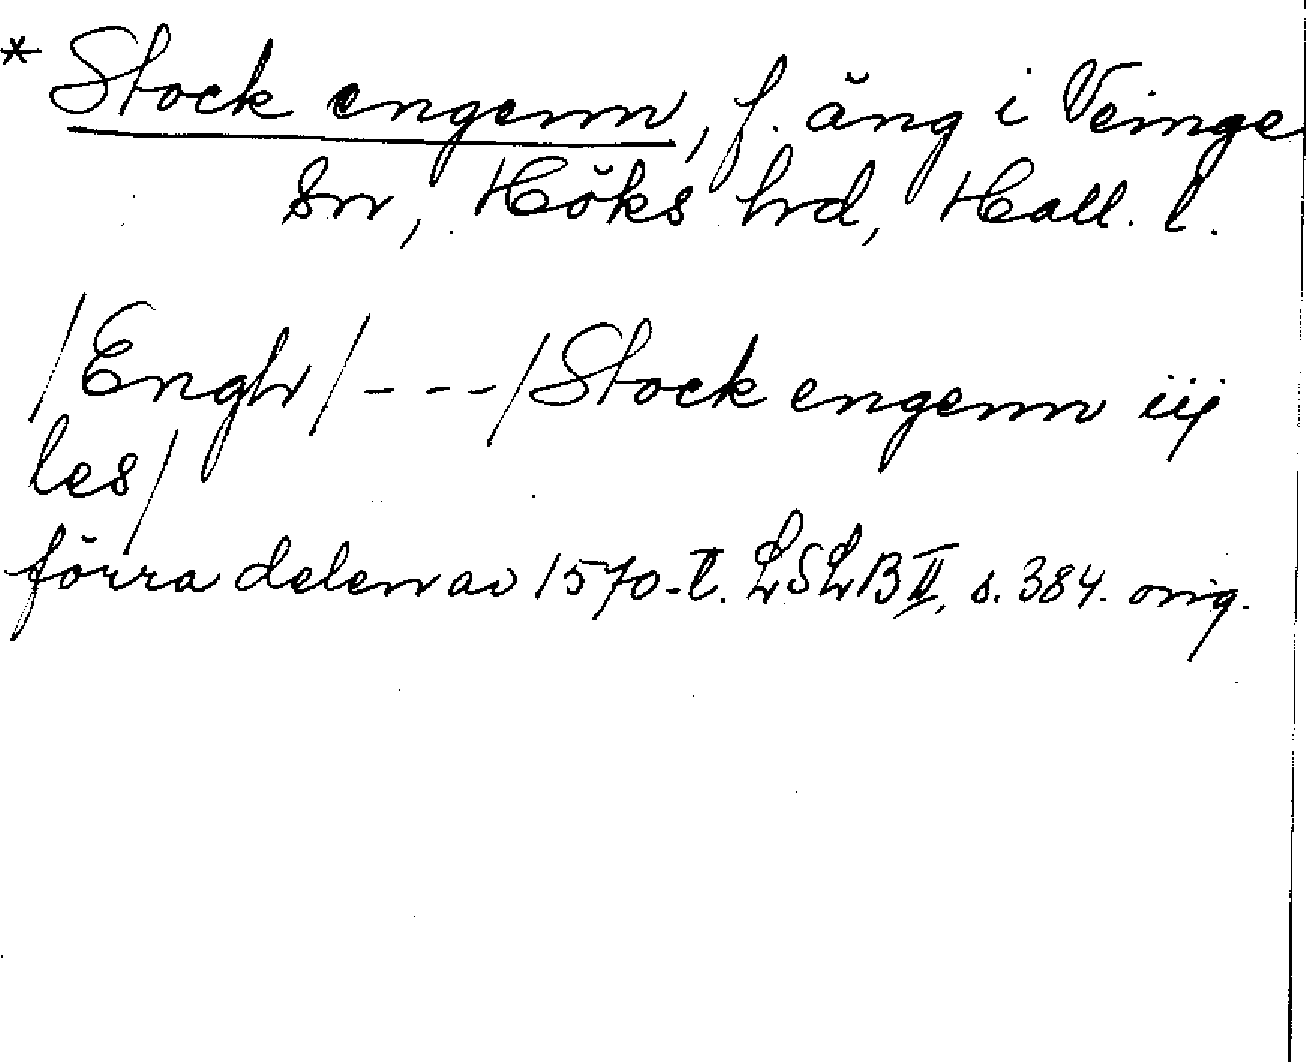 * Stock engenn, f. äng i Veinge
sn, Höks hrd, Hall. l.
/Engh/ - - - /Stock engenn iij
les/
förra delen av 1570-t. LSLB II, s. 384. orig.